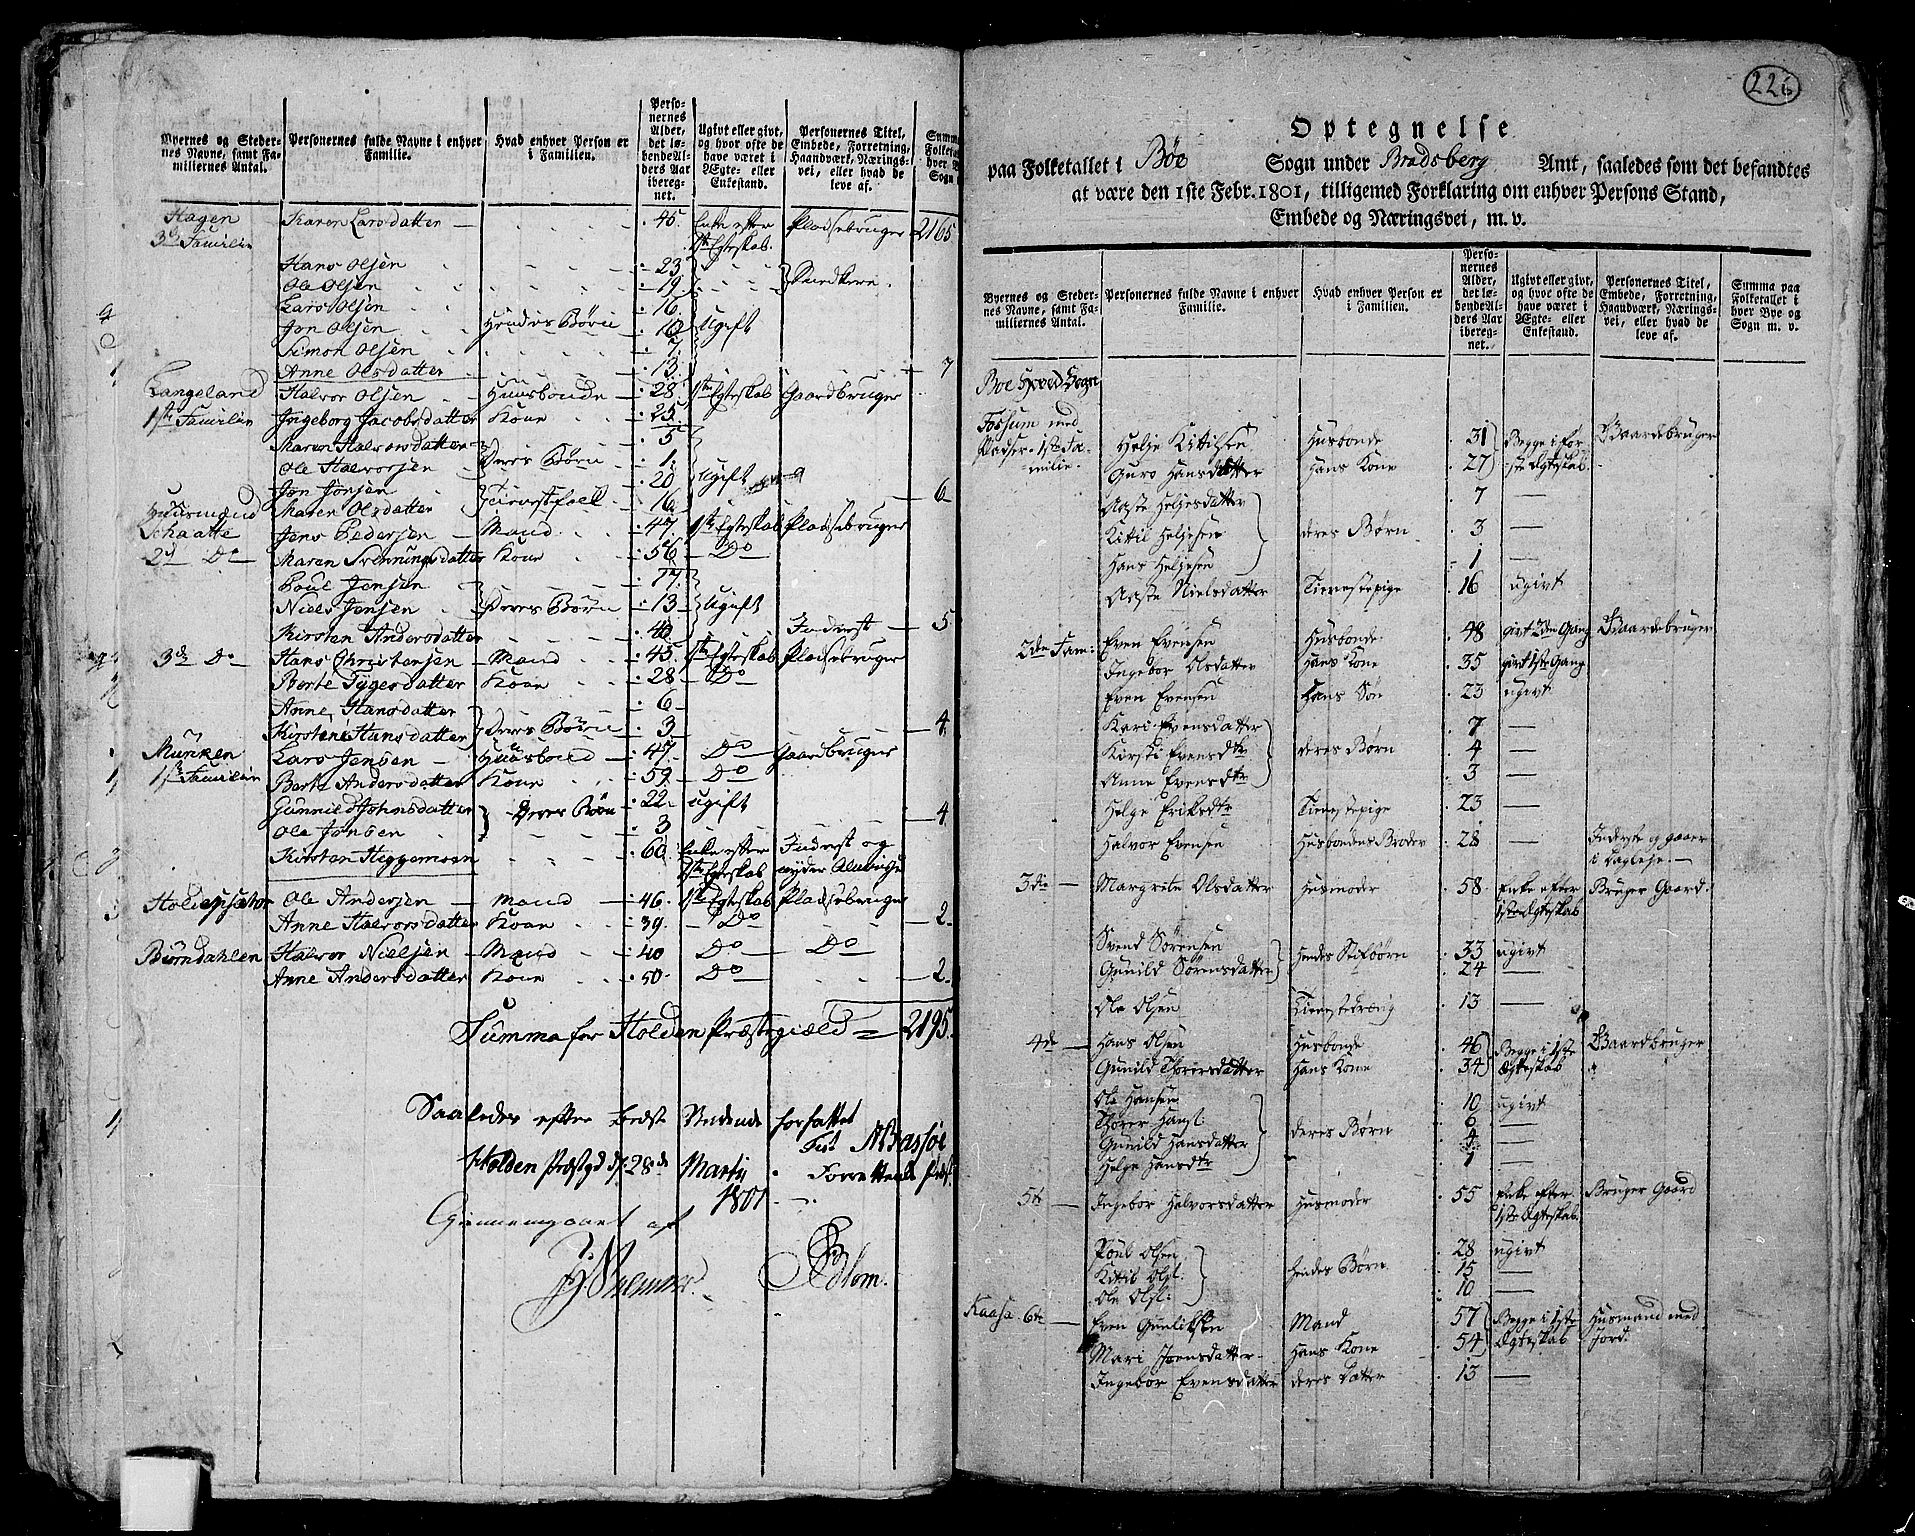 Byernes og Steder-
nes Navne, samt Fa-
miliernes Antal.
Personernes fulde Navne i enhver
Familie.
Hvad enhver Person er
i Familien.
Perso-
nernes
Alder,
det lø-
bende Al-
ders Aar
ibereg-
net.
Ugivt eller givt,
og hvor ofte de
have været i
Ægte- eller
Enkestand.
Personernes Titel,
Embede, Forretning,
Haandværk, Nærings-
vei, eller hvad de
leve af.
Hagen Karen Larsdatter 45. Enke efter Pladsebruger 2165
3de Familie 1ste Egteskab
Hans Olsen 23
Ole Olsen 19
Lars Olsen 16
Jon Olsen Hendes Børn 10 Ugift
Simon Olsen 7
Anne Olsdatter 13 7
Langeland Halvor Olsen Huusbonde 28 1ste Egteskab Gaardbruger
1ste Familie Ingeborg Jacobsdatter Kone 25
Maren Halvorsdatter 5
Ole Halvorsen Deres Børn 1
Jon Jonsen 20 Ugift
Maren Olsdatter Tienestfolk 16 6
Huusmænd
Schaatte Jens Pedersen Mand 47 1ste Egteskab Pladsebruger
2d Do Maren Svennungsdatter Kone 56 Do
Poul Jensen 17
Niels Jensen Deres Børn 13 Ugift
Kirsten Andersdatter 40 Inderst 5
3de Do Hans Christensen Mand 45 1ste Egteskab Pladsebruger
Berte Tygesdatter Kone 28 Do
Anne Hansdatter 6
Kirstene Hansdatter Deres Børn 3 4
Munken Lars Jensen Huusbond 47 Do Gaardbruger
1ste Familie Berte Andersdatter Kone 59 Do
Gunnild Johnsdatter 22 ugift
Ole Jonsen Deres Børn 3 4
Kirsten Heggemoen 60 Enke efter Inderst og
1ste Egteskab nyder Almisse
Ole Andersen Mand 46 1ste Egteskab Pladsebruger
Anne Halvorsdatter Kone 39 Do 2
Biørndahlen Halvor Nielsen Mand 40 Do Do
Anne Andersdatter Kone 50 Do 2
Summa for Holden Præstegield = 2195
Saaledes efter bedst Vidende forfattet
Holden Præstgd d. 28de Martij
1801
Giennemgaaet af
Blom.
226
Optegnelse
paa Folketallet i Bøe Sogn under Bradsberg Amt, saaledes som det befandtes
at være den 1ste Febr. 1801, tilligemed Forklaring om enhver Persons Stand,
Embede og Næringsvei, m. v.
Byernes og Steder-
nes Navne, samt Fa-
miliernes Antal.
Personernes fulde Navne i enhver
Familie.
Hvad enhver Person er
i Familien.
Perso-
nernes
Alder,
det lø-
bende Al-
ders Aar
ibereg-
net.
Ugivt eller givt,
og hvor ofte de
have været i
Ægte- eller
Enkestand.
Personernes Titel,
Embede, Forretning,
Haandværk, Nærings-
vei, eller hvad de
leve af.
Summa paa
Folketallet i
hver Bye og
Sogn m. v.
Boe Hoved Sogn
Fossum med
Pladser. 1ste Fa- Helje Kittilsen Husbonde 31 Begge i før- Gaardebruger
milie. Guro Hansdatter Hans Kone 27 ste Ægteskab
Aaste Heljesdatter 7 —
Kittil Heljesen deres Børn 3 —
Hans Heljesen 1 —
Aaste Nielsdatter Tienestepige 16 ugivt
2den Fam: Even Evensen Husbonde 48 givt 2den Gang Gaardebruger
Ingebor Olsdatter Hans Kone 35 givt 1ste Gang
Even Evensen Hans Søn 23 ugivt
Kari Evensdatter 7 —
Kirsti Evensdtr deres Børn 4 —
Anne Evensdtr 3 —
Helge Eriksdtr Tienestepige 23 —
Halvor Evensen Husbondens Broder 28 — Inderste og gaaer
i Dagleje.
3die — Margrite Olsdatter Husmoder 58 Enke efter Bruger Gaard.
1ste Ægteskab
Svend Sørensen 33 ugivt
Gunild Sørensdatter Hendes Stifbørn 24 —
Ole Olsen Tienstedreng 13 —
4de — Hans Olsen Husbonde 46 Begge i 1ste Gaardbruger
Gunild Thorersdatter Hans Kone 34 Ægteskab
Ole Hansen 10 ugivt
Thorer Hans: 6 —
Gunild Hansdatter deres Børn 4 —
Helge Hansdtr 1 —
5te — Ingebor Halvorsdatter Husmoder 55 Enke efter Bruger Gaard
1ste Ægteskab
Poul Olsen 28 ugivt
Kittil Ols: hendes Børn 15 —
Ole Ols: 10 —
Kaasa 6te — Even Gunliksen Mand 57 Begge i 1ste Husmand med
Mari Joensdatter Hans Kone 54 Ægteskab Jord.
Ingebor Evensdatter deres Datter 13 —